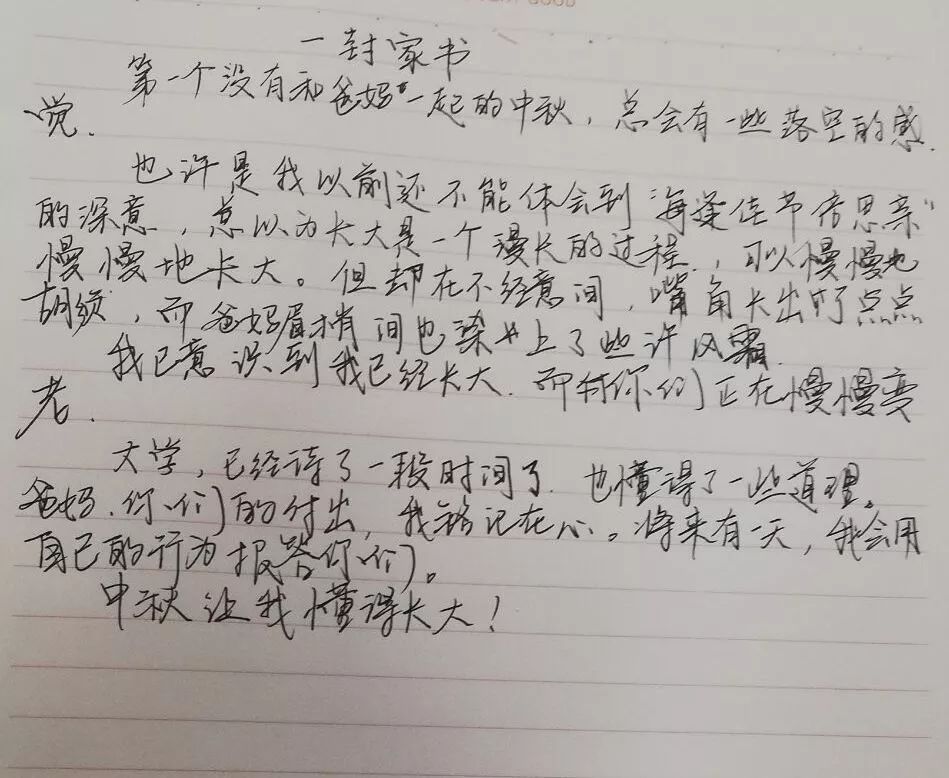 一封家书
第一个没有和爸妈一起的中秋，总会有一些落空的感
觉.
也许是我以前还不能体会到"每逢佳节倍思亲"
的深意，总以为长大是一个漫长的过程，可以慢慢地
慢慢地长大。但却在不经意间，嘴角长出了点点
胡须，而爸妈眉梢间也染上了些许风霜.
我已意识到我已经长大.而你们正在慢慢变
老.
大学，已经待了一段时间了.也懂得了一些道理。
爸妈.你们的付出，我铭记在心。将来有一天，我会用
自己的行为报答你们。
中秋让我懂得长大！